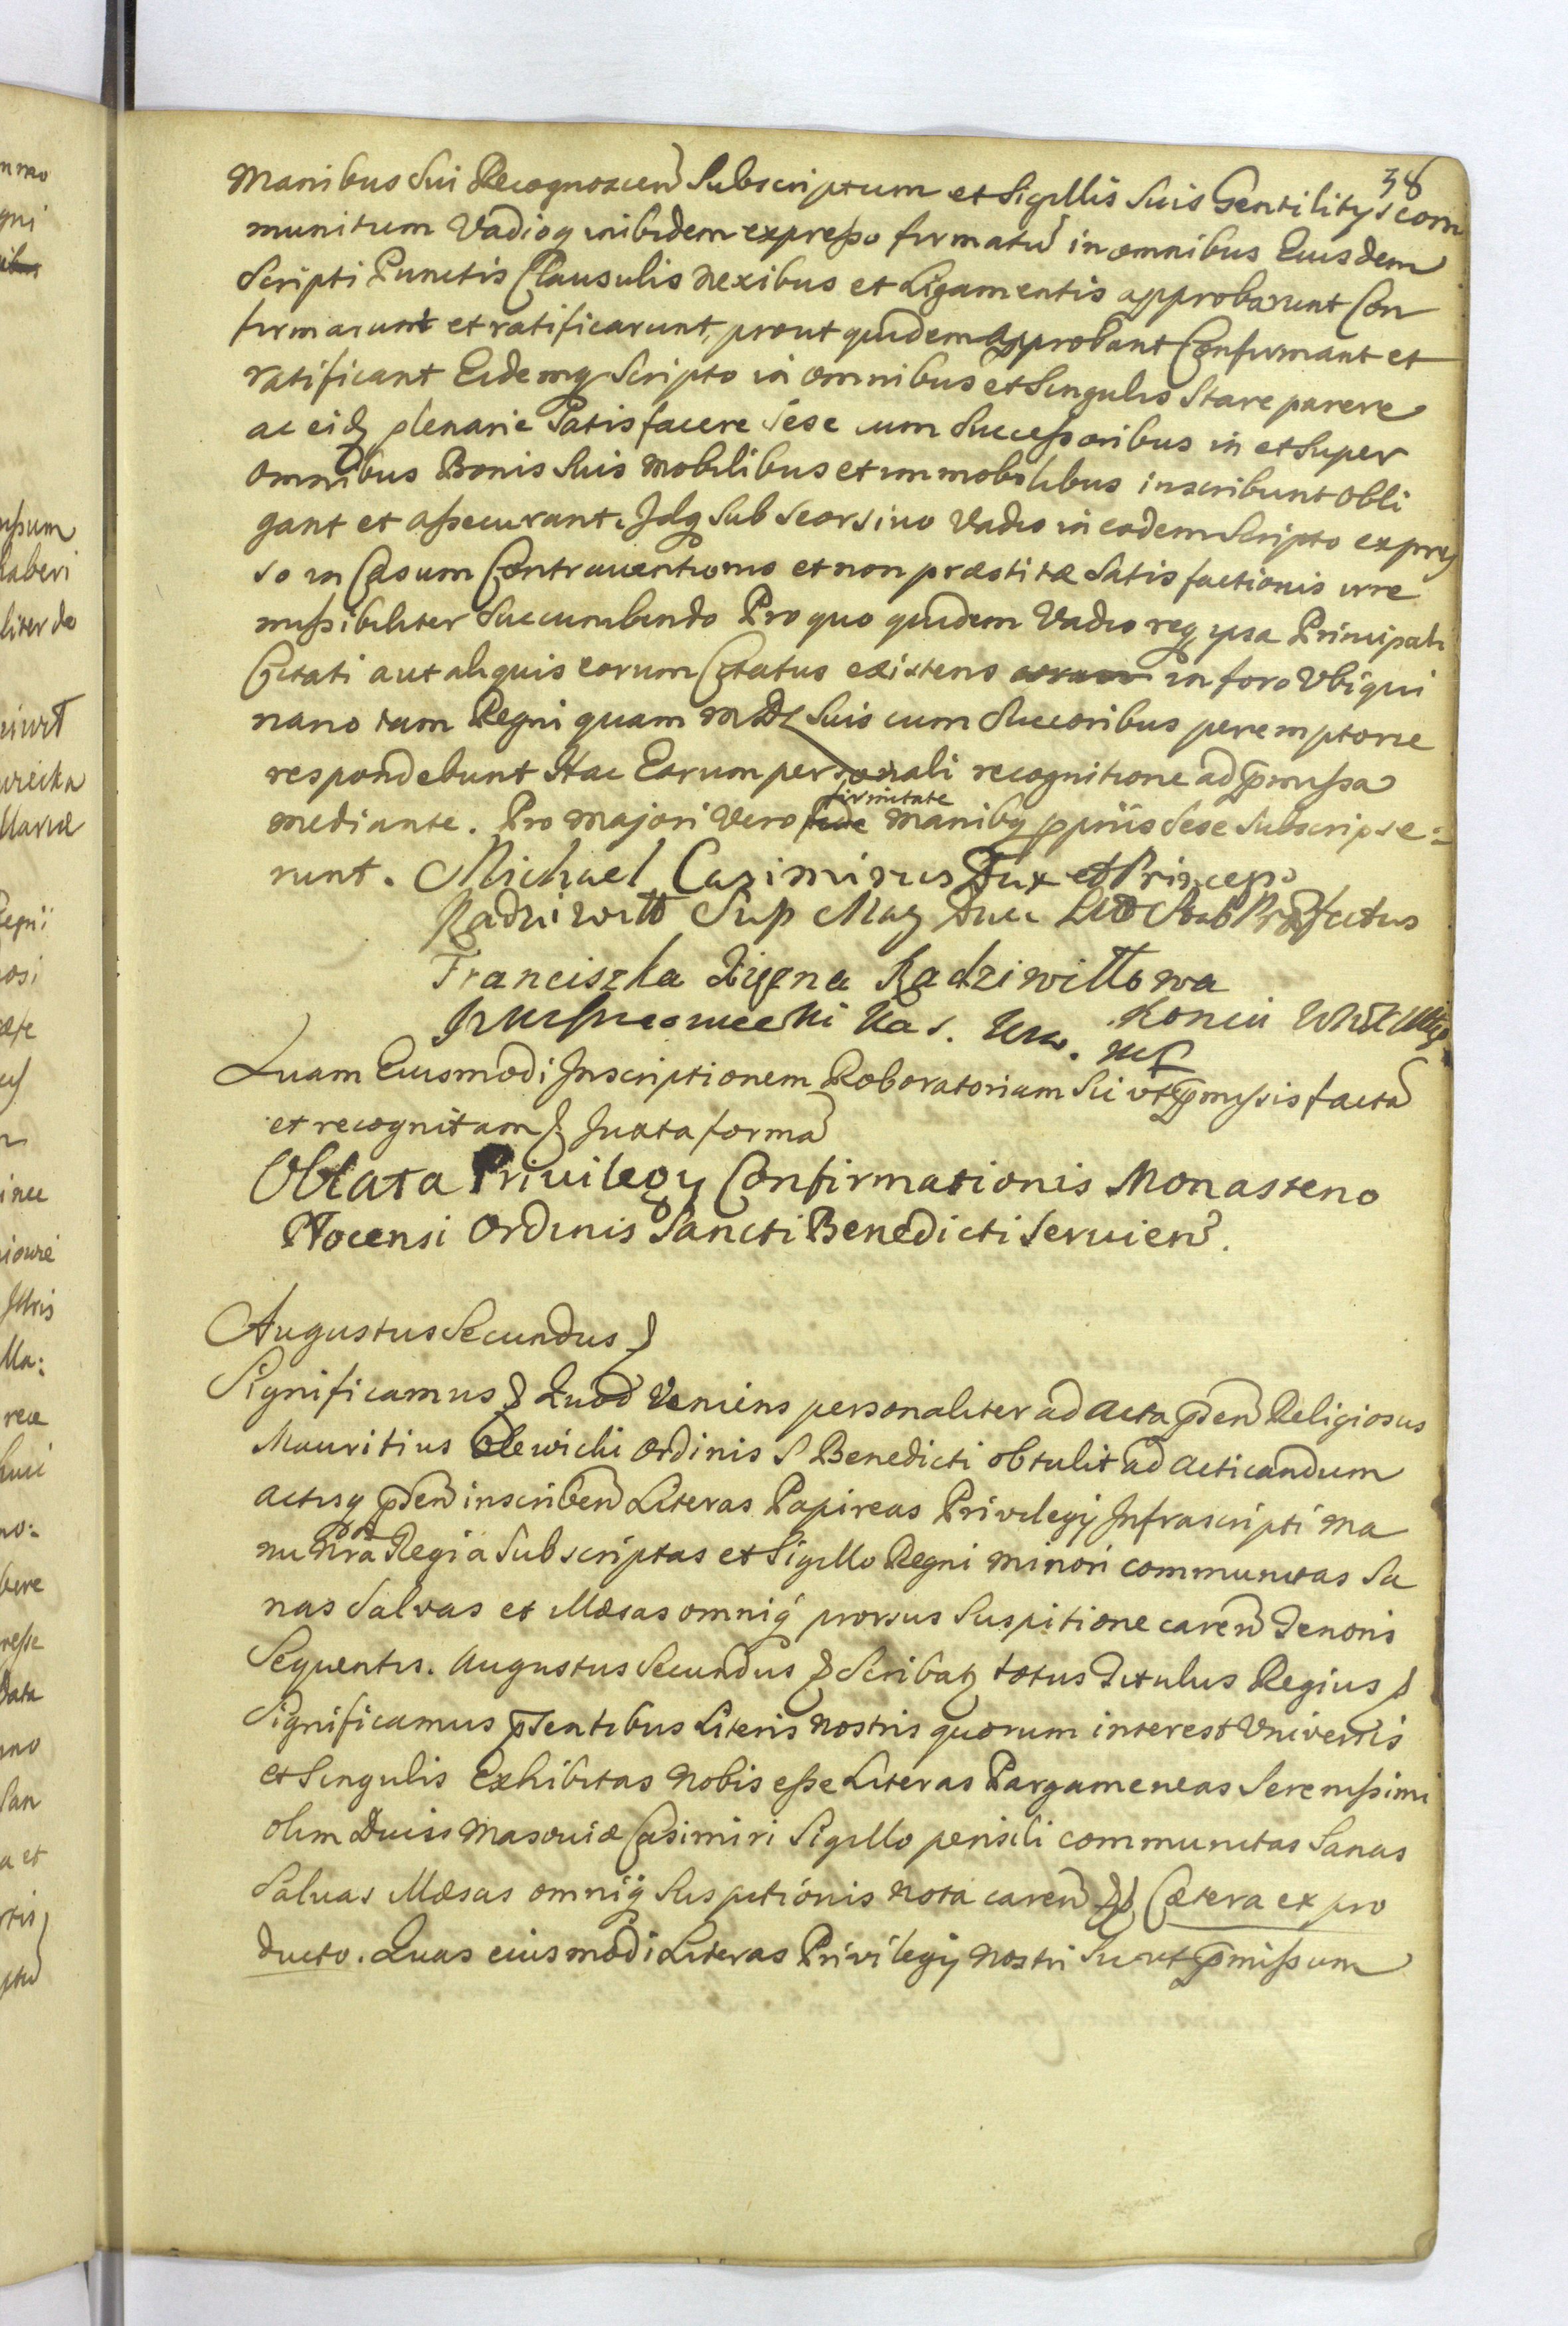 38
Manibus Sui Recognoscen Subscriptum et Sigillis Suis Gentilitys com
munitum Vadioq inibidem expresso firmatū in omnibus Eiusdem
Scripti Punctis Clausulis Nexibus et Ligamentis approbarunt Con
firmarunt et ratificarunt, prout quidem approbant Confirmant et
ratificant Eidemq Scripto in omnibus et Singulis Stare parere
ac eidq plenarie Satisfacere Sese cum Successoribus in et Super
Omnibus Bonis Suis Mobilibus et immobilibus inscribunt obli
gant et assecurant. Idq Sub Seorsivo Vadio in eodem Scripto expres
so in Casum Contraventionis et non præstitæ Satisfactionis irre
missibiliter Succumbendo Pro quo quidem Vadio req ipsa Principali
Citati aut aliquis eorum Citatus existens in foro Vbiqui
nario tam Regni quam MDL Suis cum Succoribus peremptorie
respondebunt Hac Earum personali recognitione ad p̄missa
mediante. Pro majori Vero firmitate Manibq ppriis Sese Subscripse=
runt. Michael Casimirus Dux et Princeps
Radziwiłł Sup Mag Duc Litt Stab Præfectus
Franciszka Radziwiłłowa
Koniu
Quam Eiusmodi Inscriptionem Roboratoriam Sic vt p̄missis factā
et recognitam Juxta formā
Oblata Privilegy Confirmationis Monasterio
Płocensi Ordinis Sancti Benedicti Servien.
Augustus Secundus
Significamus Quod Veniens personaliter ad Acta p̄sen Religiosus
Mauritius Olewicki Ordinis S Benedicti obtulit ad Acticandum
actisq p̄sen inscriben Literas Papireas Privilegij Infrascripti Ma
nu Nrā Regia Subscriptas et Sigillo Regni minori communitas Sa
nas Salvas et Illæsas omniq prorsus Suspitione caren Tenoris
Sequentis. Augustus Secundus Scribatq totus Titulus Regius
Significamus p̄sentibus Literis Nostris quorum interest Vniversis
et Singulis Exhibitas Nobis esse Literas Pargameneas Serenissimi
olim Ducis Masoviæ Casimiri Sigillo pensili communitas Sanas
Salvas Illæsas omniq Suspitionis Nota caren Cætera ex pro
ducto. Quas eiusmodi Literas Privilegij Nostri Sic ut p̄missum